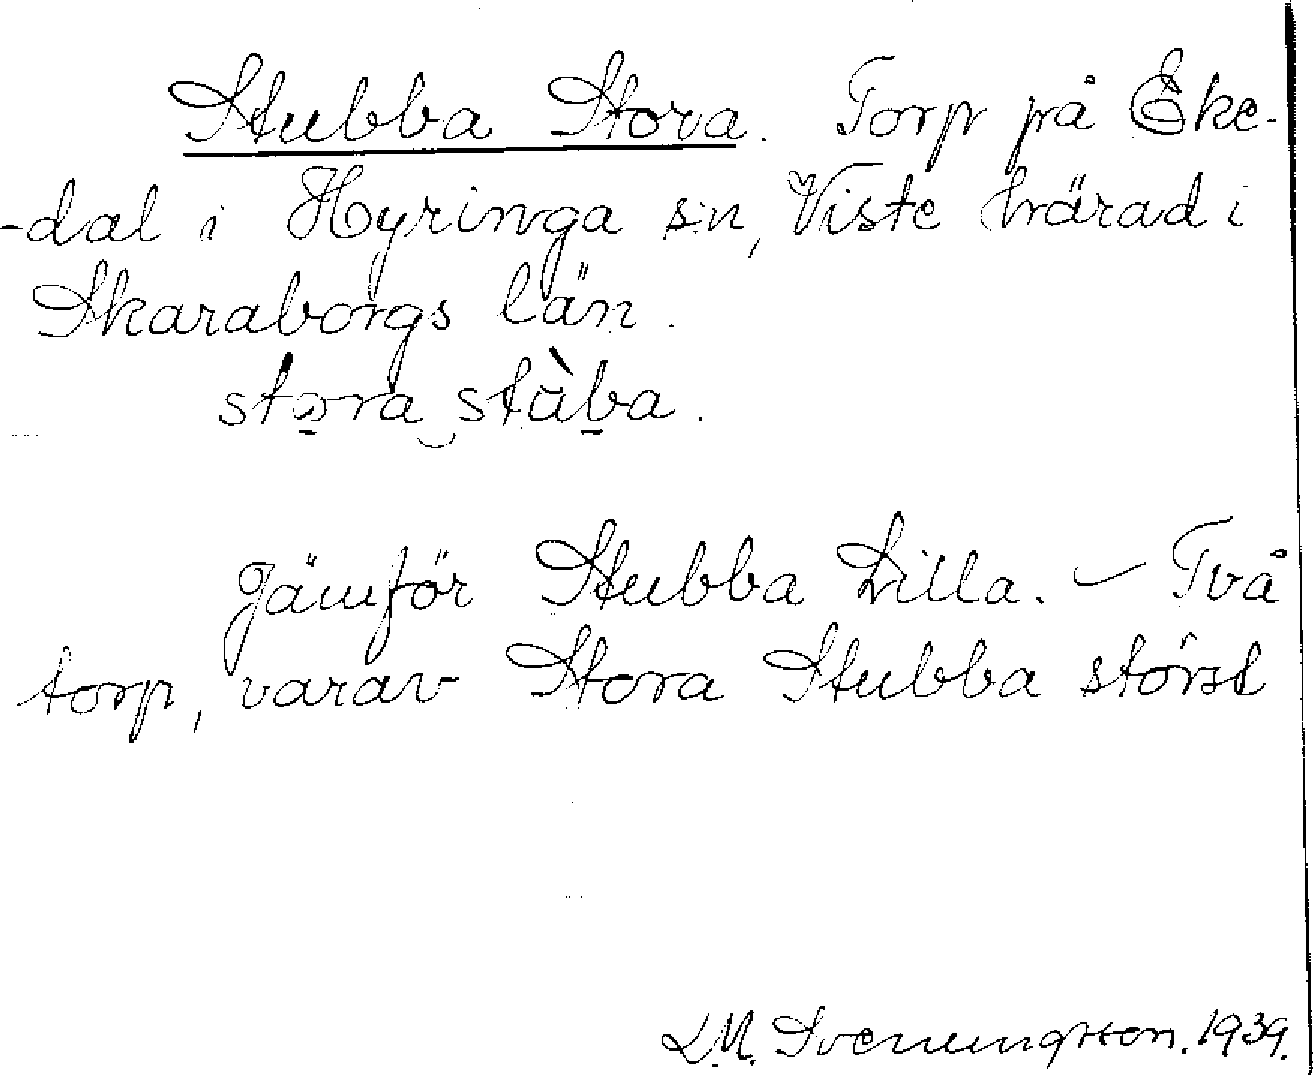 Stubba Stora. Torp på Eke-
-dal i Hyringa sn, Viste härad i
Skaraborgs län.
stora stùba.
Jämför Stubba Lilla. – Två
torp, varav Stora Stubba störst
L.M. Svenungsson. 1939.